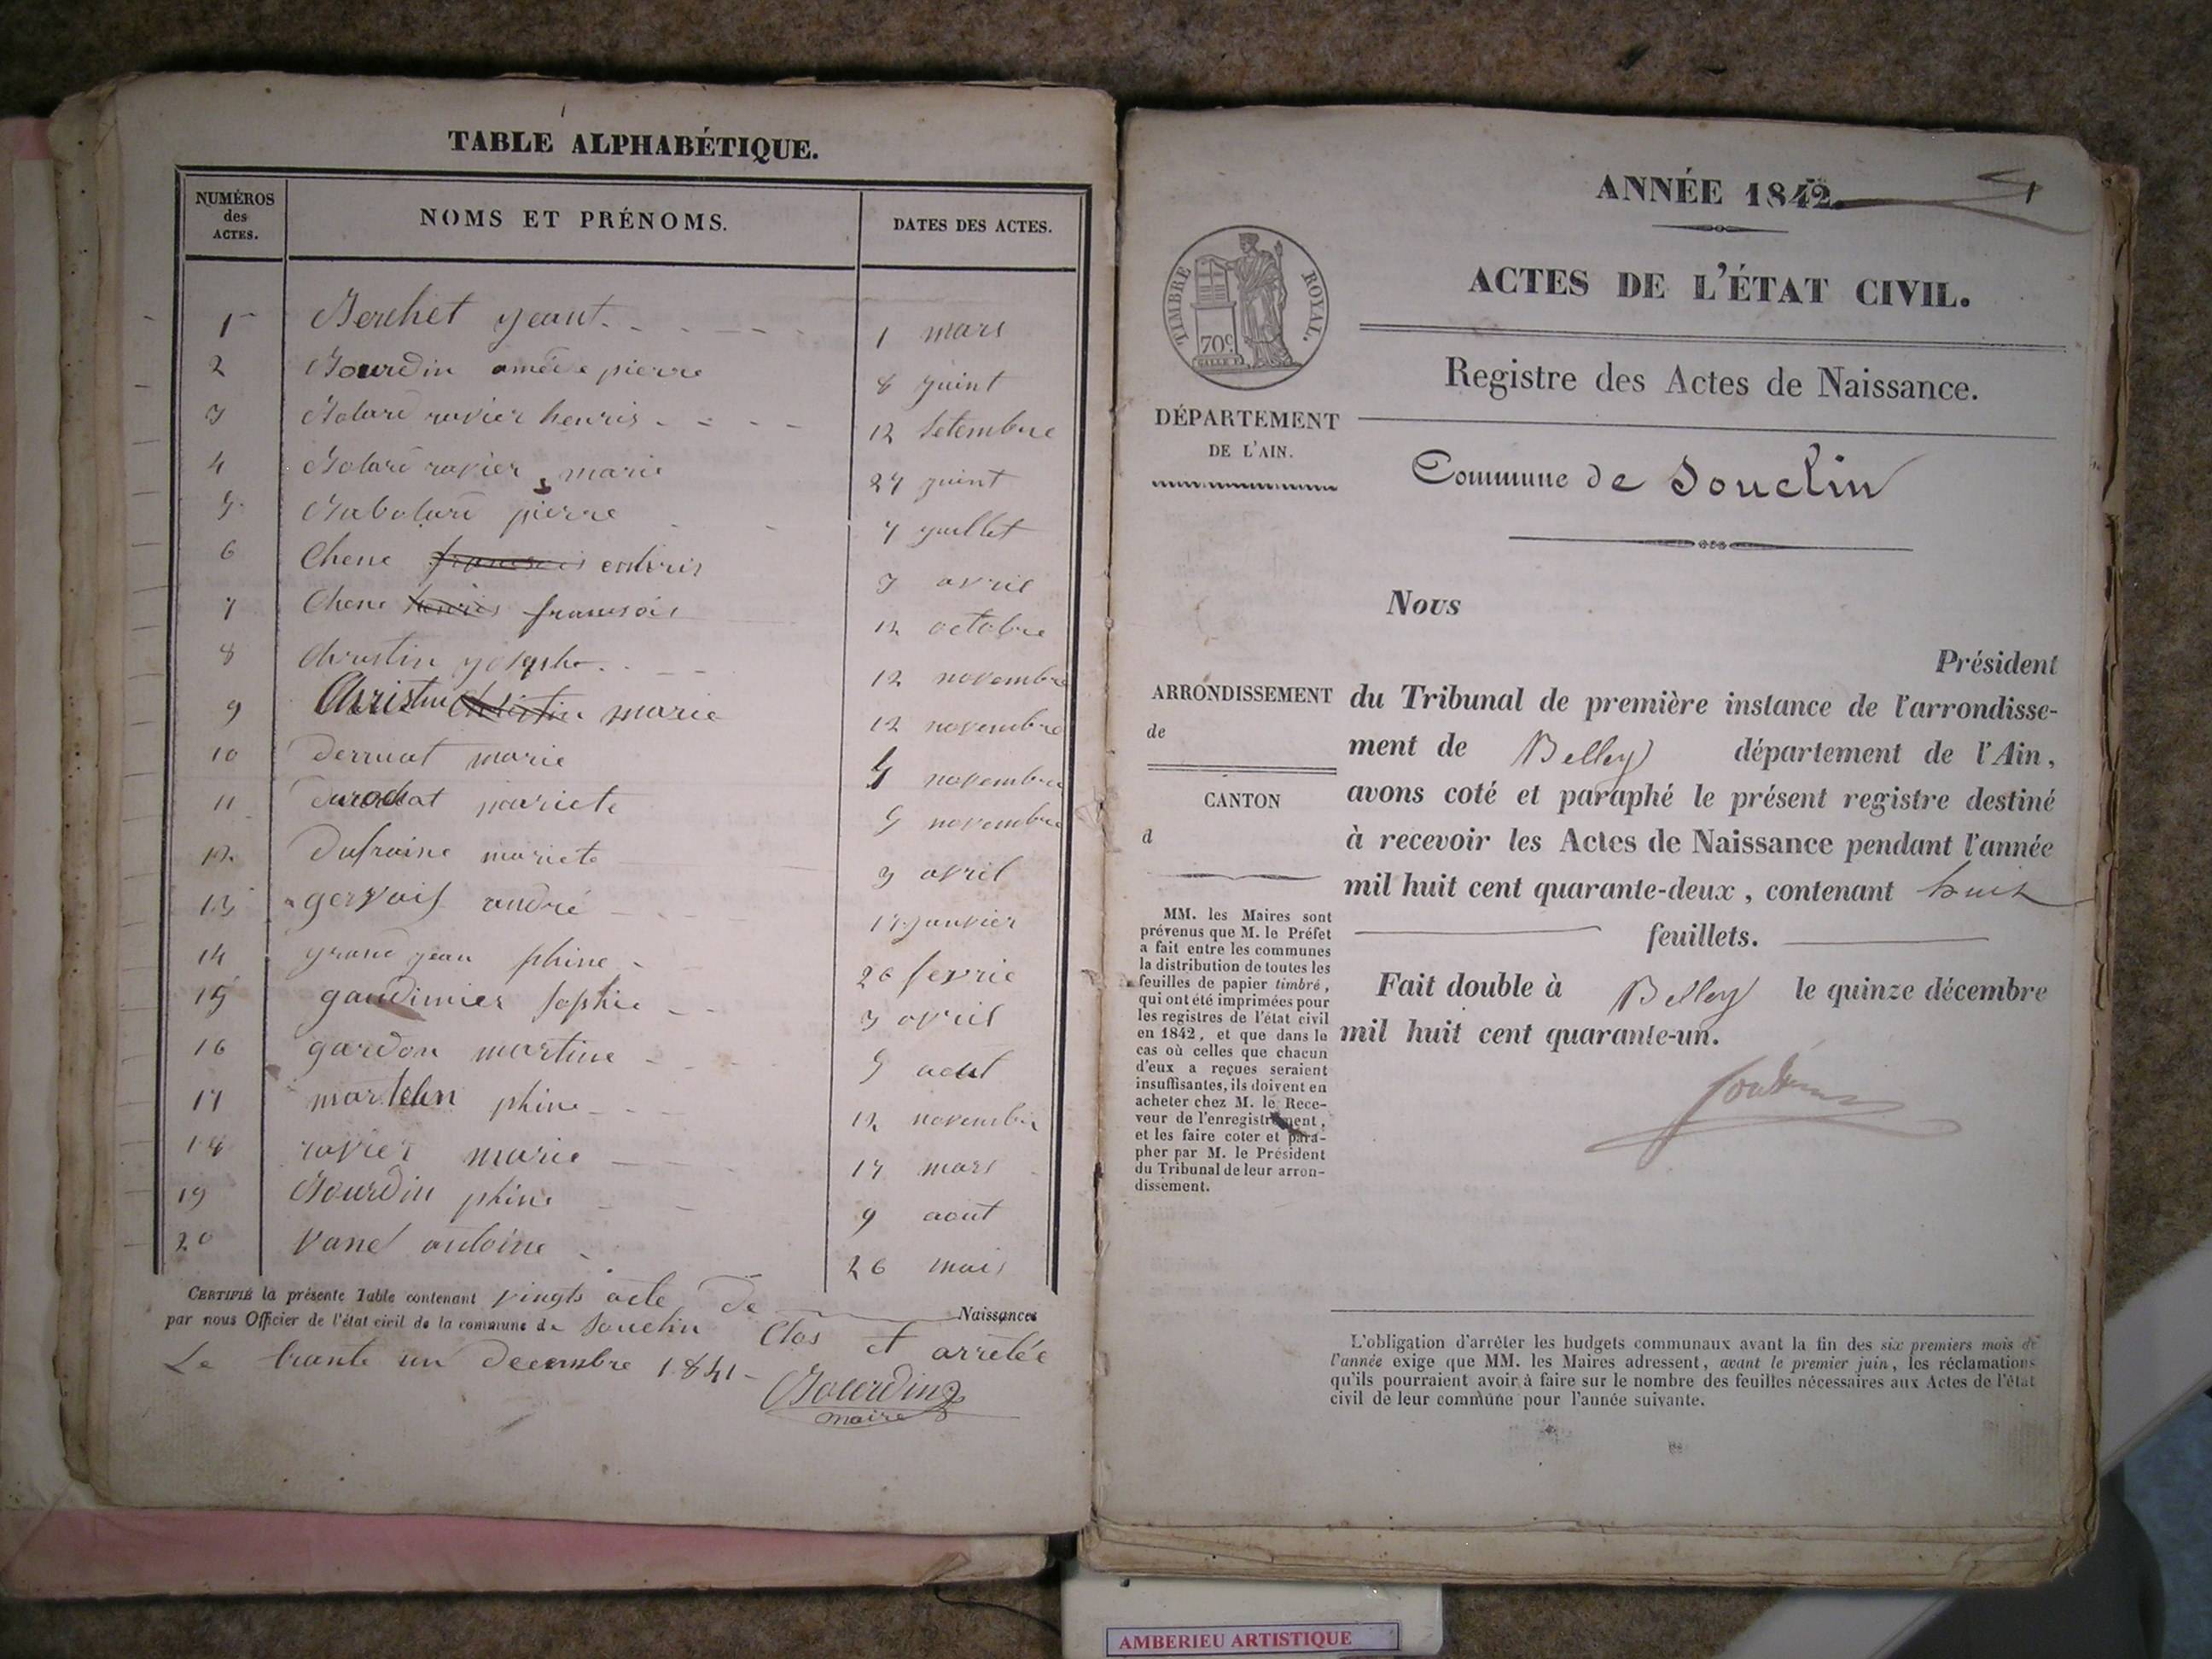 TABLE ALPHABÉTIQUE.
NUMÉROS des ACTES. NOMS ET PRÉNOMS. DATES DES ACTES.
1 Berchet jeant 1 mars
2 Bourdin amédé pierre 8 juint
3 Bolard ravier henris 12 setembre
4 Bolard ravier marie 27 juint
5 pierre 7 juillet
6 Chene fransois enbris 3 avril
7 Chene henris fransois 12 octobre
8 Christin joseph 12 novembre
9 Christin Christin marie 12 novembre
10 Derruat marie 5 novembre
11 Durochat mariete 5 novembre
12 Dufraine mariete 3 avril
13 gervais andré 17 janvier
14 grand jean phine 26 fevrie
15 gaudimier Sophie 3 avril
16 gardon martine 5 aout
17 martelin phine 12 novembre
18 ravier marie 17 mars
19 Bourdin phine 9 aout
20 Vanel antoine 26 mais
CERTIFIÉ la présente Table contenant vingts acte De Naissances
par nous Officier de l'état civil de la commune de Souclin Clos et arretée
Le trante un Decembre 1841
Bourdin
maire
ANNÉE 1842.
TIMBRE ROYAL.
70c
ACTES DE L'ÉTAT CIVIL.
Registre des Actes de Naissance.
DÉPARTEMENT
DE L'AIN.
Commune de Souclin
Nous
Président
ARRONDISSEMENT
de
CANTON
d
du Tribunal de première instance de l'arrondisse-
ment de Belley département de l'Ain,
avons coté et paraphé le présent registre destiné
à recevoir les Actes de Naissance pendant l'année
mil huit cent quarante-deux, contenant huit
feuillets.
Fait double à Belley le quinze décembre
mil huit cent quarante-un.
MM. les Maires sont
prévenus que M. le Préfet
a fait entre les communes
la distribution de toutes les
feuilles de papier timbré,
qui ont été imprimées pour
les registres de l'état civil
en 1842, et que dans le
cas où celles que chacun
d'eux a reçues seraient
insuffisantes, ils doivent en
acheter chez M. le Rece-
veur de l'enregistrement,
et les faire coter et para-
pher par M. le Président
du Tribunal de leur arron-
dissement.
L'obligation d'arrêter les budgets communaux avant la fin des six premiers mois de
l'année exige que MM. les Maires adressent, avant le premier juin, les réclamations
qu'ils pourraient avoir à faire sur le nombre des feuilles nécessaires aux Actes de l'état
civil de leur commune pour l'année suivante.
AMBERIEU ARTISTIQUE